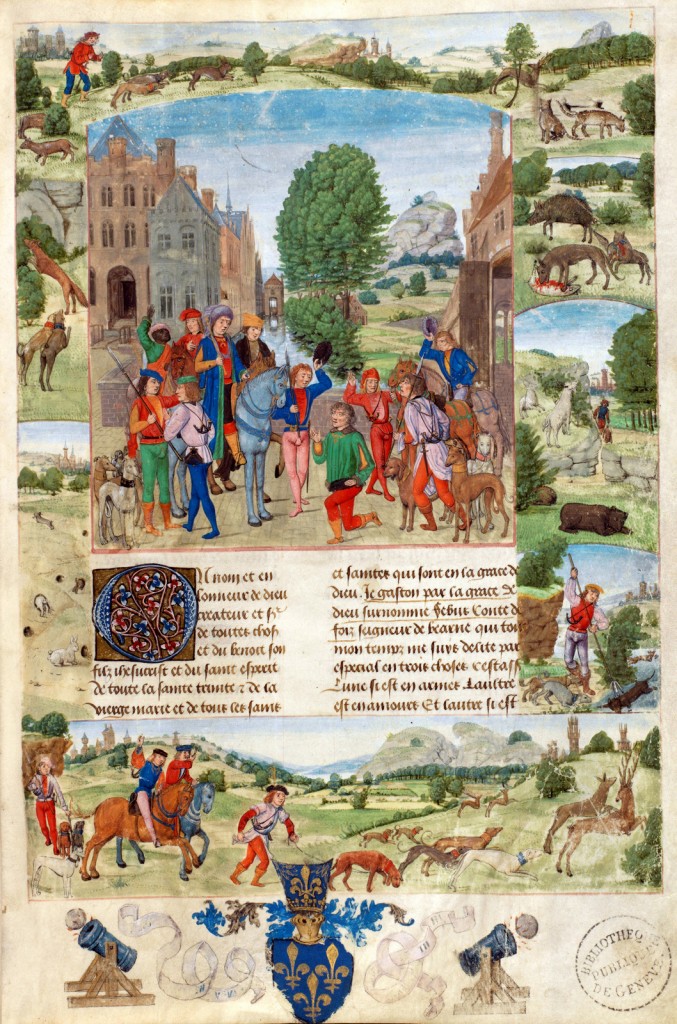 On nom et en
honneur de dieu
createur et sr
de toutes chos
et du benoit son
filz ihesucrist et du saint esperit
de toute la sainte trinite z de la
vierge marie et de tous les saintz
et saintes qui sont en la grace de
dieu. Je gaston par la grace de
dieu surnomme febus Conte d
foix seigneur de bearne qui tout
mon temps me suys delite par
especial en trois choses Cestass
Lune si est en armes Laultre
est en amours Et lautre si est
BIBLIOTHEQUE
PUBLIQUE
DE GENEVE